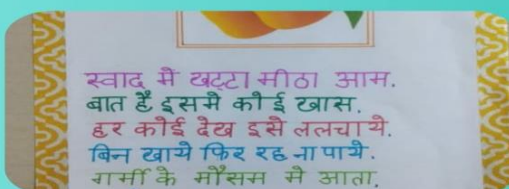 स्वाद में खट्टा मीठा आम.
बात है इसमें कोई खास.
हर कोई देख इसे ललचाये.
बिन खाये फिर रह ना पाये.
गर्मी के मौसम में आता.